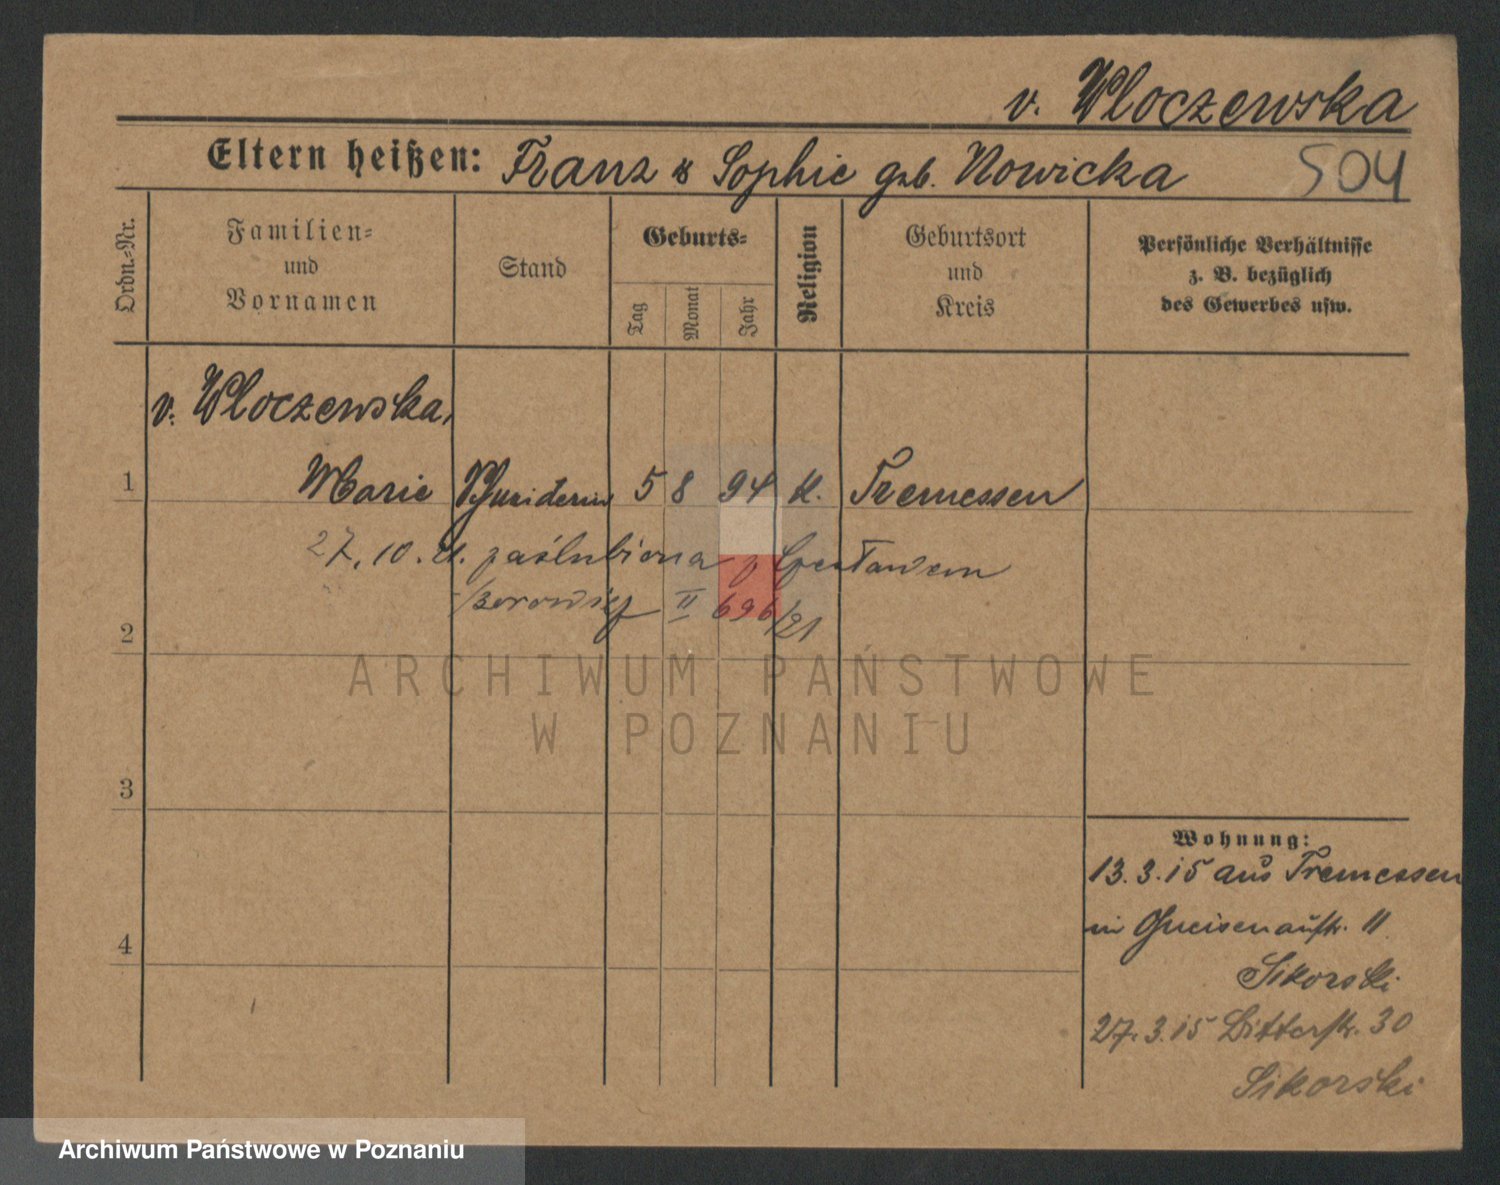 v. Wloczewska
Eltern heißen: Franz & Sophie geb. Nowicka 504
Ordn.-Nr.
Familien-
und
Vornamen
Stand
Geburts-
Tag
Monat
Jahr
Religion
Geburtsort
und
Kreis
Persönliche Verhältnisse
z. B. bezüglich
des Gewerbes usw.
v. Wloczewska,
1 Marie 5 8 94 K. Tremessen
27. 10. 21. zaślubiona z
II 696/21
2
ARCHIWUM PAŃSTWOWE
W POZNANIU
3
Wohnung:
13. 3. 15 aus Tremessen
in Gneisenaustr. 11
4
Sikorski
27. 3. 15 Bitterstr. 30
Sikorski
Archiwum Państwowe w Poznaniu